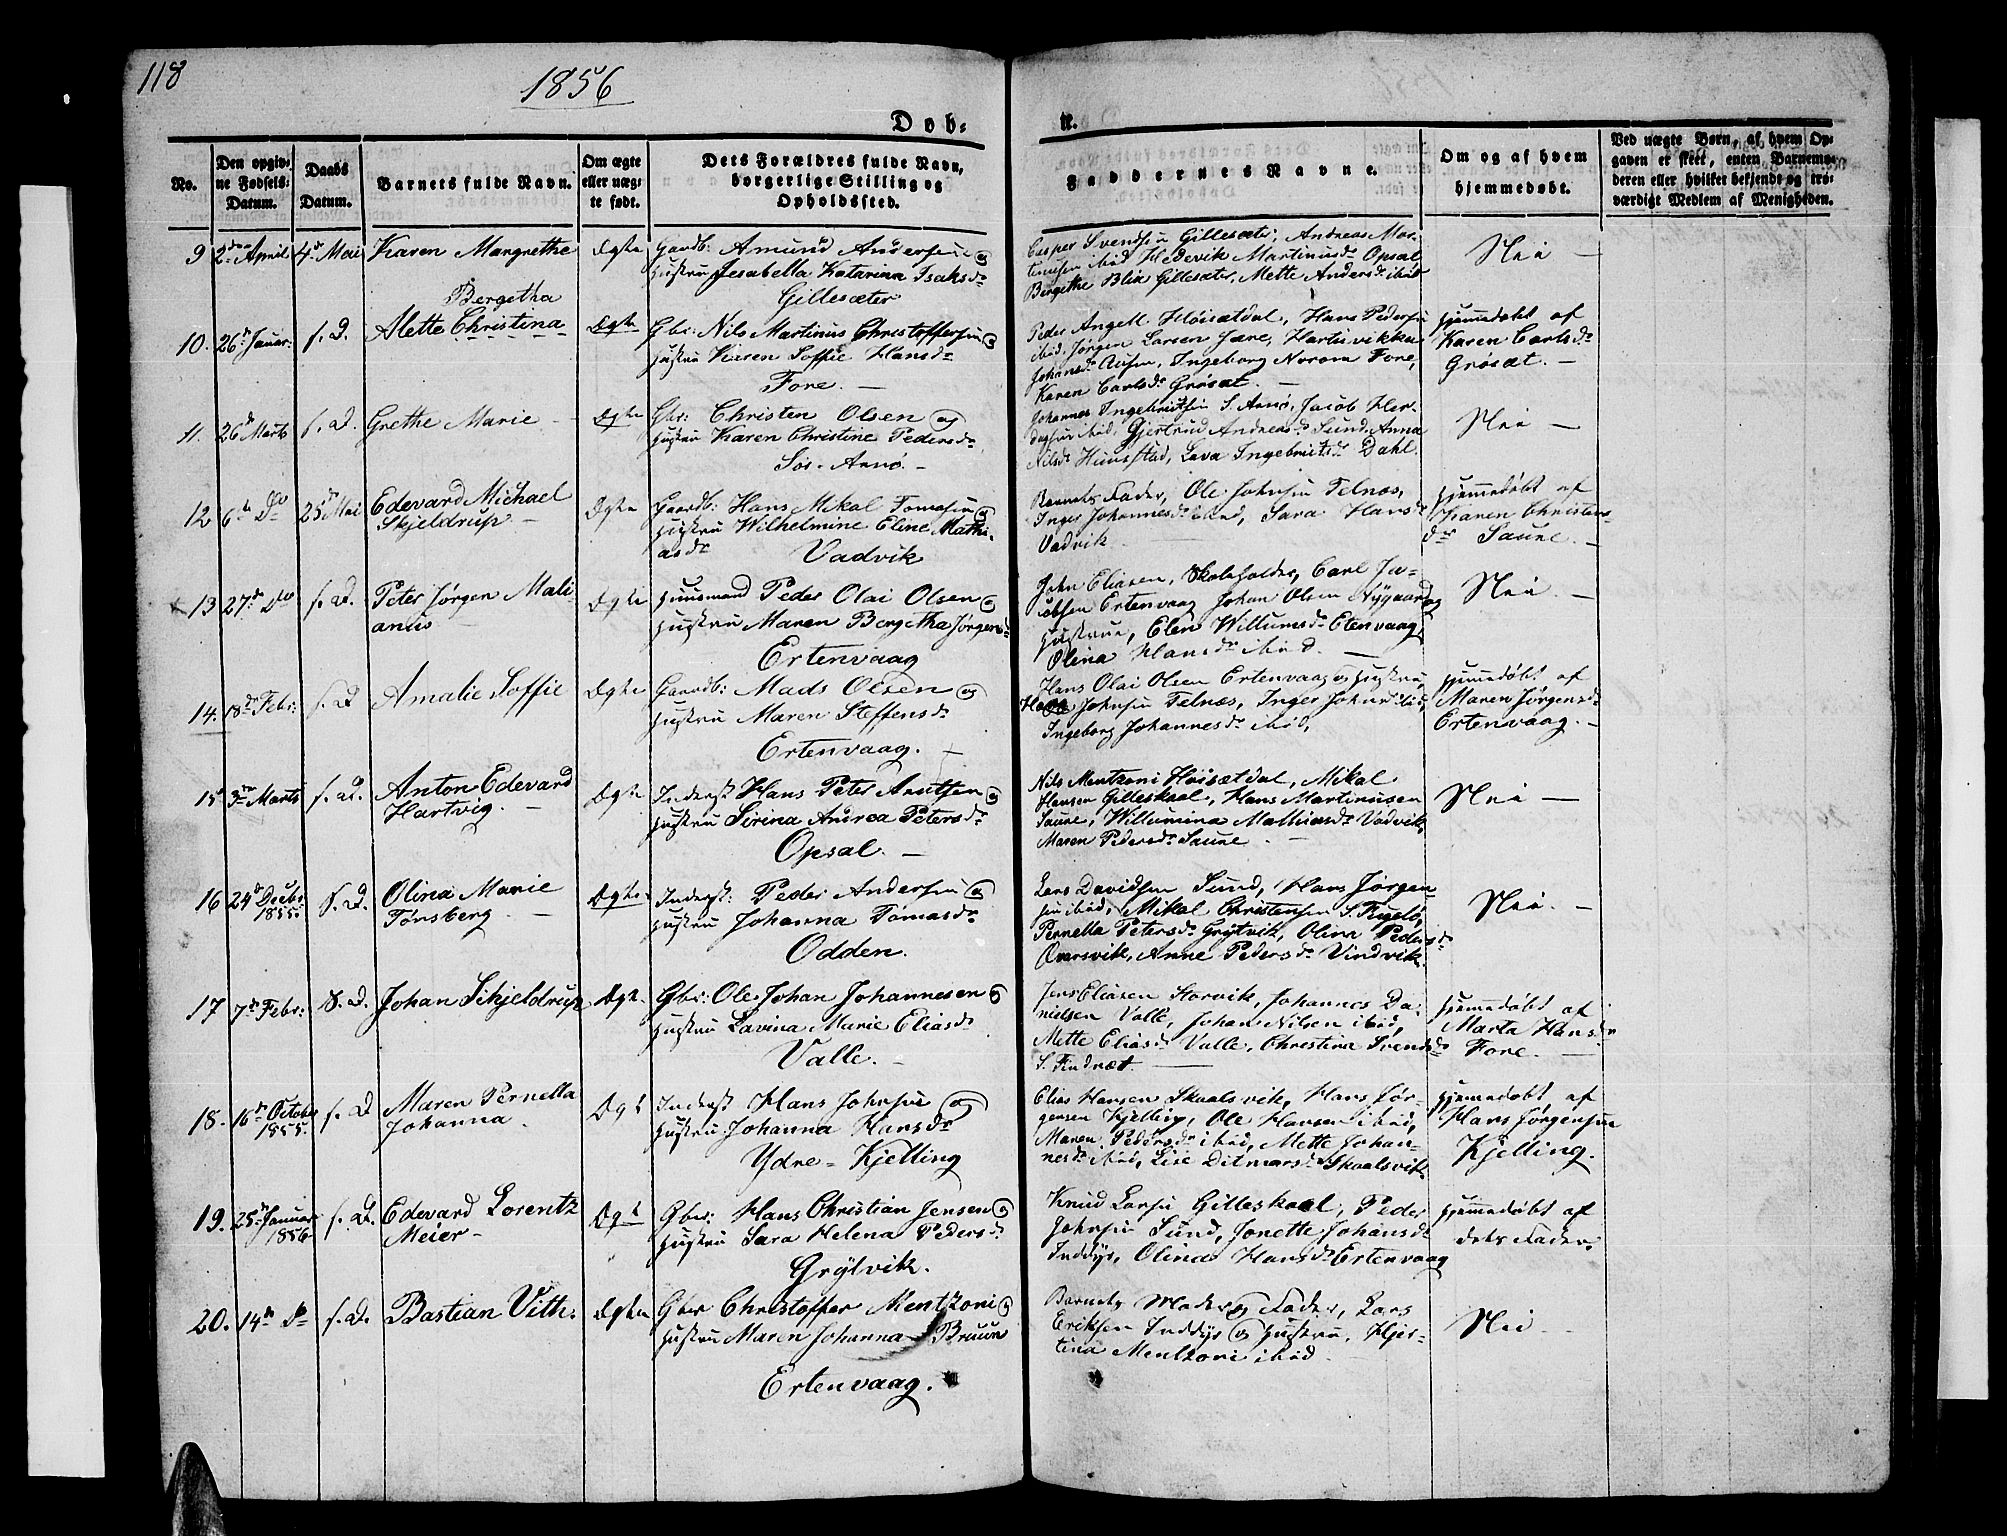 118
1856
Døb-
te.
No.
Den opgiv-
ne Fødsels-
Datum.
Daabs
Datum.
Barnets fulde Navn.
Om ægte
eller uæg-
te født.
Dets Forældres fulde Navn,
borgerlige Stilling og
Opholdssted.
Faddernes Navne.
Om og af hvem
hjemmedøbt.
Ved uægte Børn, af hvem Op-
gaven er skeet, enten Barnemo-
deren eller hvilket bekjendt og tro-
værdigt Medlem af Menigheden.
9 2den April 4de Mai Karen Margrethe Ægte Gaardb: Amund Andersen og
Hustru Jesabella Katarina Isaksdr
Gillesæter
Casper Svendsen Gillesæter, Andreas Mor-
tensen ibid Hedevik Martinusdr Opsal
Bergithe Blix Gillesæter, Mette Andersdr ibid
Nei —
10. 26de Januar s. D. Alette Bergetha Christina Ægte Gbr: Nils Martinus Christoffersen og
Hustru Karen Soffie Hansdr
Fore. —
Peder Angell Høisætdal, Hans Pedersen
ibid. Jørgen Larsen Fore, Hartvikka
Johansdr Ausen, Ingeborg Norom Fore,
Karen Carlsdr Grøsæt. —
Hjemmedøbt af
Karen Carlsdr
Grøsæt. —
11. 26de Marts s. D. Grethe Marie Ægte Gbr: Christen Olsen og
Hustru Karen Christine Pedersdr
Sør-Arnø. —
Johannes Ingebrigtsen S. Arnø, Jacob
ibid, Gjertrud Andreasdr Sund. Anna
Nilsdr Hunstad, Lava Ingebrigtsdr Dahl.
Nei —
12 6te Do 25de Mai Edevard Michael
Skjeldrup — Ægte Gaardb: Hans Mikal Tomasen og
Hustru Wilhelmine Eline Mathi-
asdr Vadvik
Barnets Fader, Ole Johnsen Telnæs,
Inger Johannesdr ibid, Sara Hansdr
Vadvik
Hjemmedøbt af
Karen Christens-
dr Saune. —
13 27de Do s. D. Peter Jørgen Mali-
anus Ægte Huusmand Peder Olai Olsen og
Hustru Maren Bergetha Jørgensdr
Ertenvaag
John Eliasen, Skoleholder, Carl Ja-
cobsen Ertenvaag Johan Olsen Nygaard og
Hustrue, Elen Willumsdr Etenvaag,
Olina Hansdr ibid. —
Nei. —
14. 18de Febr: s. D Amalie Soffie Ægte Gaardb: Mads Olsen og
Hustru Maren Steffensdr
Ertenvaag. —
Hans Olai Olsen Ertenvaag og Hustru,
Johnsen Telnæs, Inger ibid,
Ingeborg Johannesdr ibid,
Hjemmedøbt af
Maren Jørgensdr
Ertenvaag. —
15 3die Marts s. D. Anton Edevard
Hartvig. — Ægte Inderst Hans Peter Arntsen og
Hustru Sirina Andrea Petersdr
Opsal. —
Nils Mentzoni Høisætdal, Mikal
Hansen Gilleskaal, Hans Martinusen
Saune, Willumina Mathiasdr Vadvik,
Maren Pedersdr Saune —
Nei —
16 24de Decbr
1855. s. D. Olina Marie
Tønsberg. — Ægte Inderst: Peder Andersen og
Hustru Johanna Tomasdr
Odden.
Lars Davidsen Sund, Hans Jørgen-
sen ibid, Mikal Christensen S. Fugelø,
Pernella Petersdr Grytvik, Olina Pedersdr
Oversvik, Anne Pedersdr Vindvik
Nei. —
17 7de Febr: s. D. Johan Skjeldrup Ægte Gbr: Ole Johan Johannesen og
Hustru Lavina Marie Eliasdr
Valle. —
Jens Eliasen Storvik, Johannes Da-
nielsen Valle, Johan Nilsen ibid,
Mette Eliasdr Valle, Christina Svendsdr
S. Findnæt. —
Hjemmedøbt af
Marta Hansdr
Fore. —
18. 16de October
1855. s. D Maren Pernella
Johanna. Ægt Inderst Hans Johnsen og
Hustru Johanna Hansdr
Ydre-Kjelling
Elias Hansen Skaalsvik, Hans Jør-
gensen Kjelling, Ole Hansen ibid,
Maren Pedersdr ibid, Mette Johan-
nesdr ibid, Lise Ditmarsdr Skaalsvik
Hjemmedøbt af
Hans Jørgensen
Kjelling.
19. 25de Januar
1856 s. D. Edevard Lorentz
Meier — Ægt Gbr: Hans Christian Jensen og
Hustru Sara Helena Pedersdr
Grytvik.
Knud Larsen Gilleskaal, Peder
Johnsen Sund, Jonette Johansdr
Inddyr, Olina Hansdr Ertenvaag
Hjemmedøbt af
dets Fader.
20. 14de Do s. D. Bastian Vith. Ægte Gbr Christoffer Mentzoni og
Hustru Maren Johanna Bruun
Ertenvaag.
Barnets Moder og Fader, Lars
Eriksen Inddyr og Hustru, Kjer-
tina Mentzoni ibid
Nei —